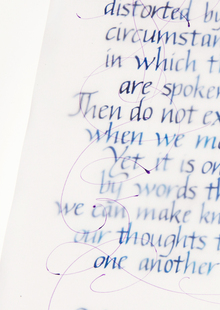 distorted by
circumstan
in which th
are spoken
Then do not ex
when we m
Yet it is on
by words th
we can make kn
our thoughts t
one another